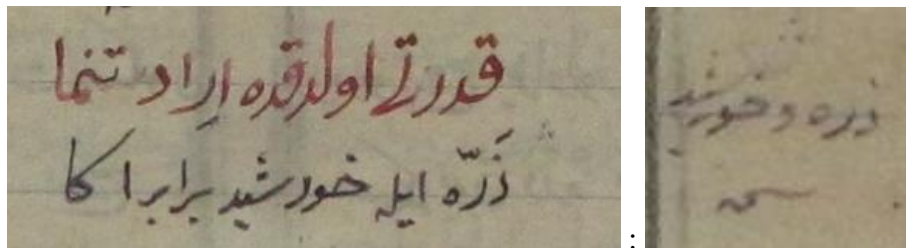 قدرتے اولدقده اِراد تنما
ذَرّه ايله خورشيد برابر اكا
:
ذره و خورشيد